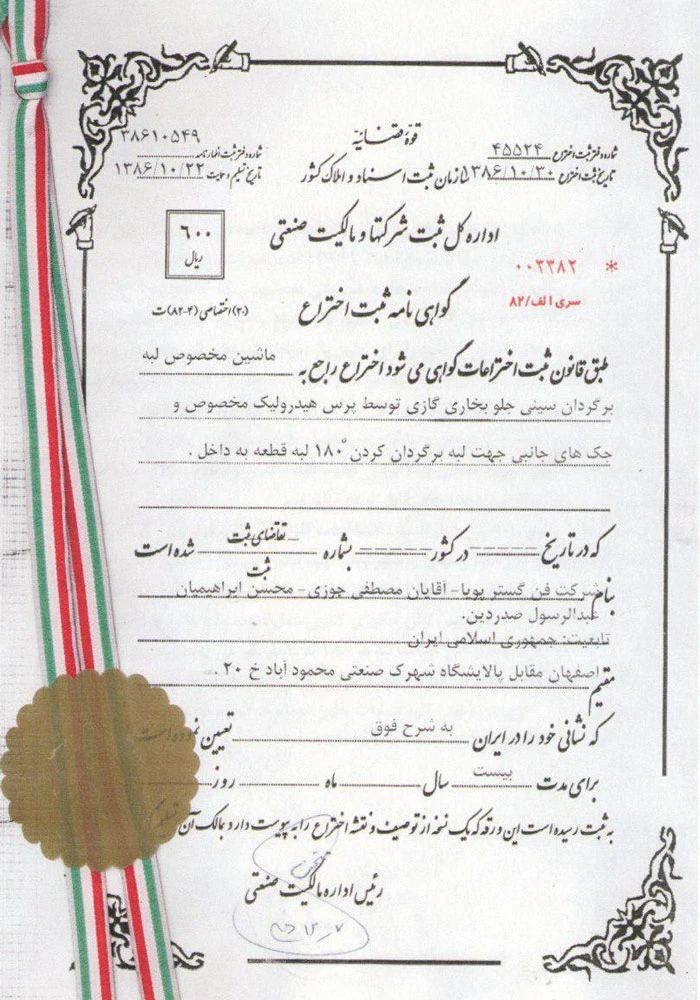 قوهٔ قضائیه
شماره دفتر ثبت اختراع ۴۵۵۲۴
تاریخ ثبت اختراع ۱۳۸۶/۱۰/۳۰
سازمان ثبت اسناد و املاک کشور
۳۸۶۱۰۵۴۹
شماره دفتر ثبت اظهارنامه
تاریخ تسلیم و حمایت ۱۳۸۶/۱۰/۲۲
اداره کل ثبت شرکتها و مالکیت صنعتی
۶۰۰
ریال
* ۰۰۳۳۸۲
سری الف/۸۲
گواهی نامه ثبت اختراع
(۳۰) اختصاصی (۴-۸۲) ت
طبق قانون ثبت اختراعات گواهی می شود اختراع راجع به ماشین مخصوص لبه
برگردان سینی جلو بخاری گازی توسط پرس هیدرولیک مخصوص و
جک های جانبی جهت لبه برگردان کردن ۱۸۰° لبه قطعه به داخل .
که در تاریخ ----- در کشور ===== بشماره ----- تقاضای ثبت شده است
ثبت
بنام شرکت فن گستر پویا- آقایان مصطفی جوزی- محسن ابراهیمیان
عبدالرسول صدردین.
تابعیت: جمهوری اسلامی ایران
مقیم اصفهان مقابل پالایشگاه شهرک صنعتی محمود آباد خ ۲۰ .
که نشانی خود را در ایران به شرح فوق تعیین نموده است
برای مدت بیست سال ماه روز
به ثبت رسیده است این ورقه که یک نسخه از توصیف و نقشه اختراع را به پیوست دارد بمالک آن
رئیس اداره مالکیت صنعتی